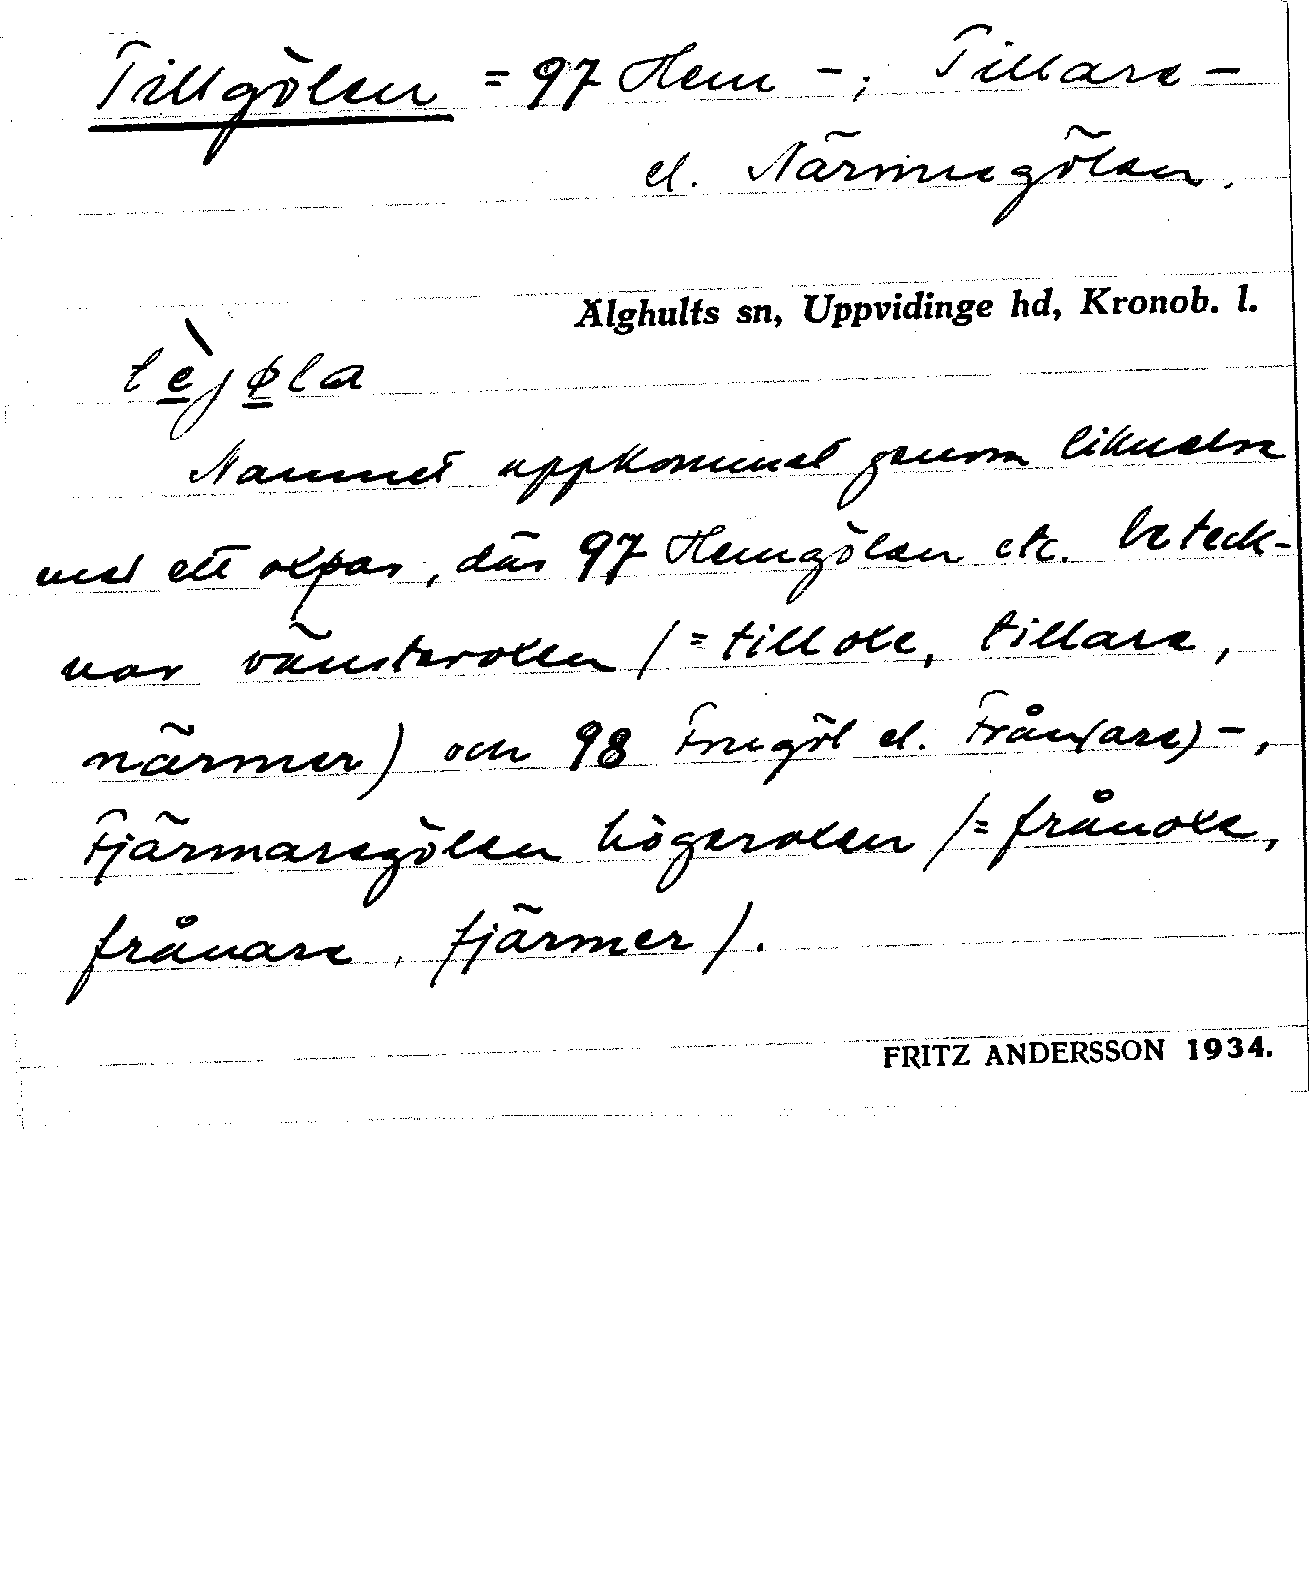 Tillgölen = 97 Hem -; Tillare -
el. Närmegölen.
Älghults sn, Uppvidinge hd, Kronob. l.
tèjøla
Namnet uppkommet genom liknelse
med ett okpar, där 97 Hemgölen etc. beteck-
nar vänsteroken (= tilloke, tillare,
närmer) och 98 el. Från(are) -,
Fjärmaregölen högeroken (= frånoke,
frånare, fjärmer).
FRITZ ANDERSSON 1934.